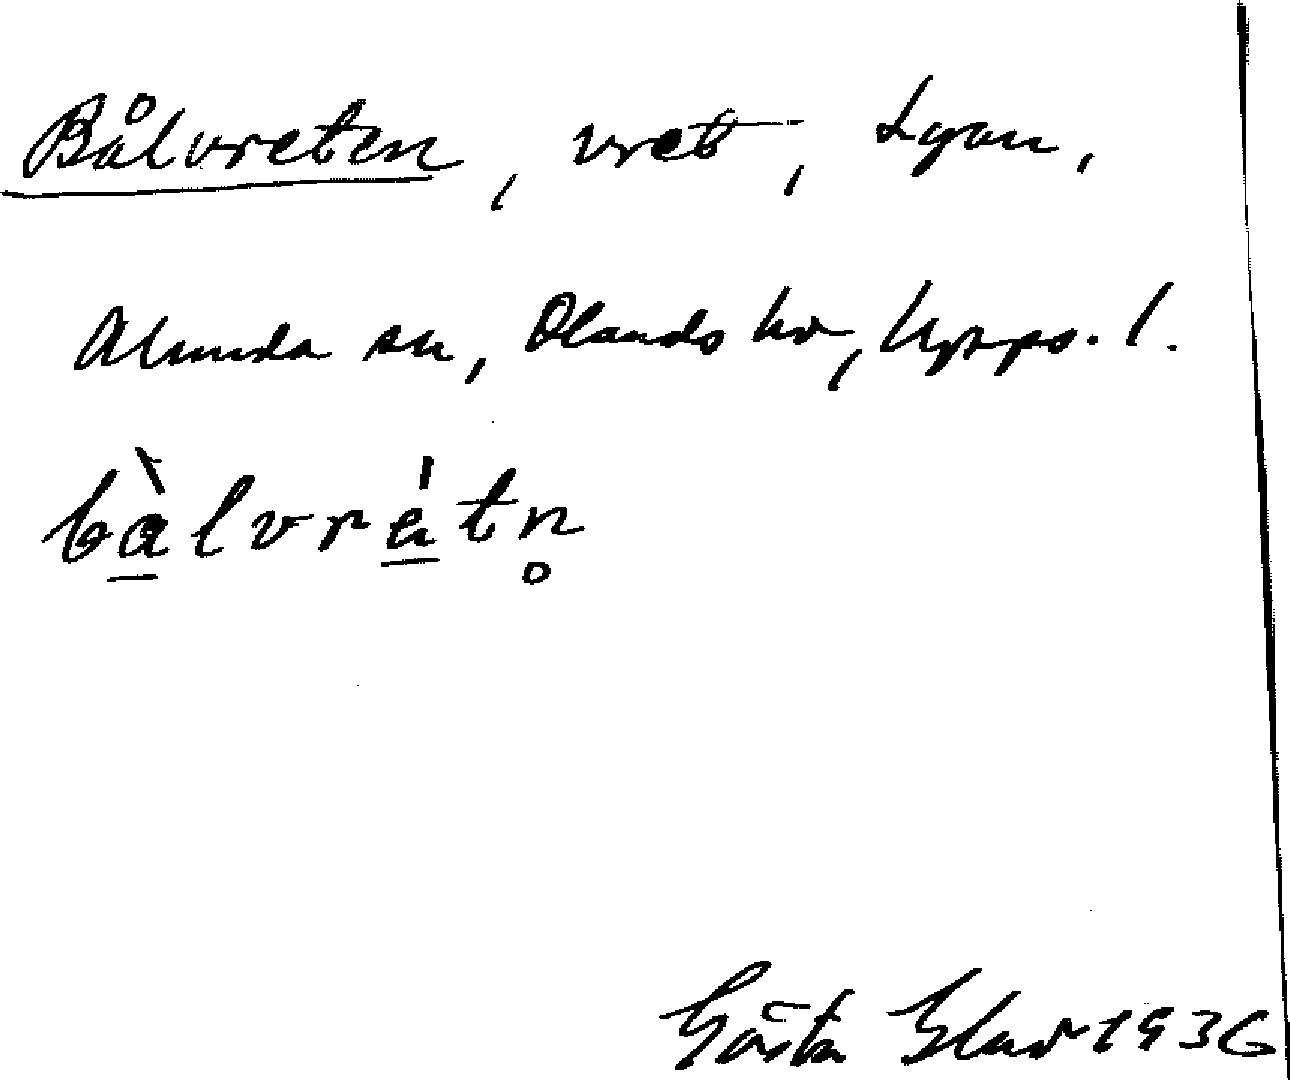 Bålvreten, vret, Lyan,
Alunda sn, Olands hd, Upps. l.
bà̱lvrè̱tn̥
Gösta 1936